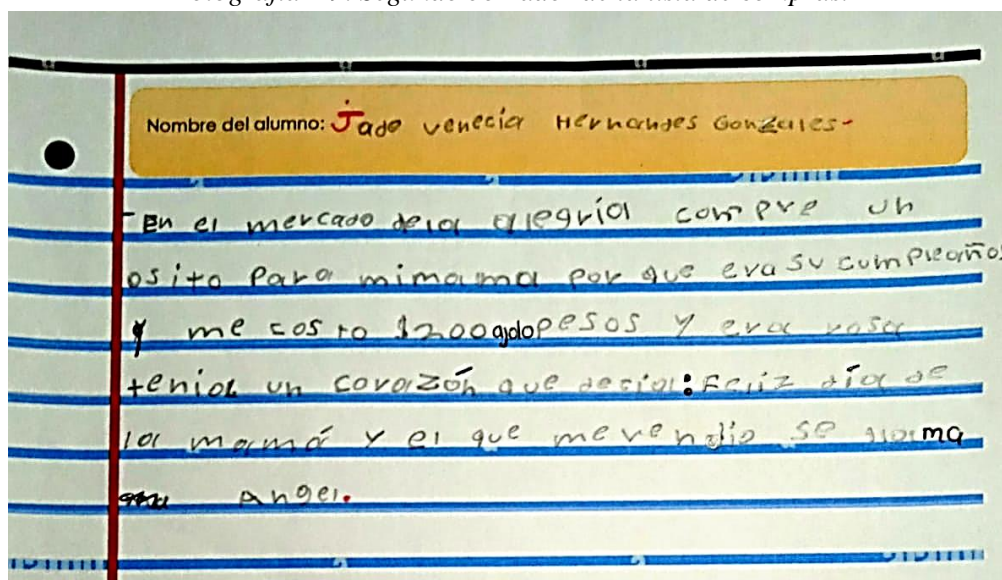 Nombre del alumno: Jado venecia Hernandes Gonzales-
-En el mercado dela alegría compre un
osito para mimama por que era su cumpleaños
y me costo $200 pesos y era rosa
tenia un corazón que desia: Feliz día de
la mamá y el que mevendio se llama
Angel.